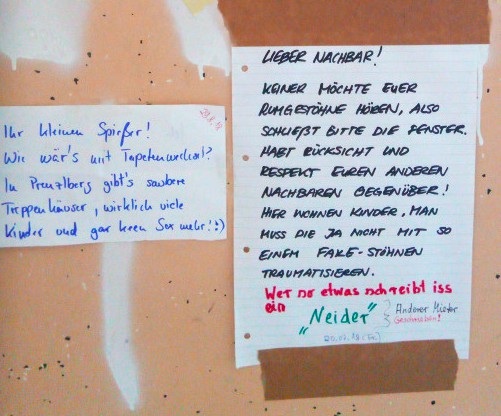 Ihr kleinen Spießer!
Wie wär's mit Tapetenwechsel?
In Prenzlberg gibt's saubere
Treppenhäuser, wirklich viele
Kinder und gar keen Sex mehr! :)
LIEBER NACHBAR!
KEINER MÖCHTE EUER
RUMGESTÖHNE HÖREN, ALSO
SCHLIEßT BITTE DIE FENSTER.
HABT RÜCKSICHT UND
RESPEKT EUREN ANDEREN
NACHBAREN GEGENÜBER!
HIER WOHNEN KINDER, MAN
MUSS DIE JA NICHT MIT SO
EINEM FAKE-STÖHNEN
TRAUMATISIEREN.
Wer so etwas schreibt iss
ein
"Neider"
Anderer Mieter
Geschrieben!